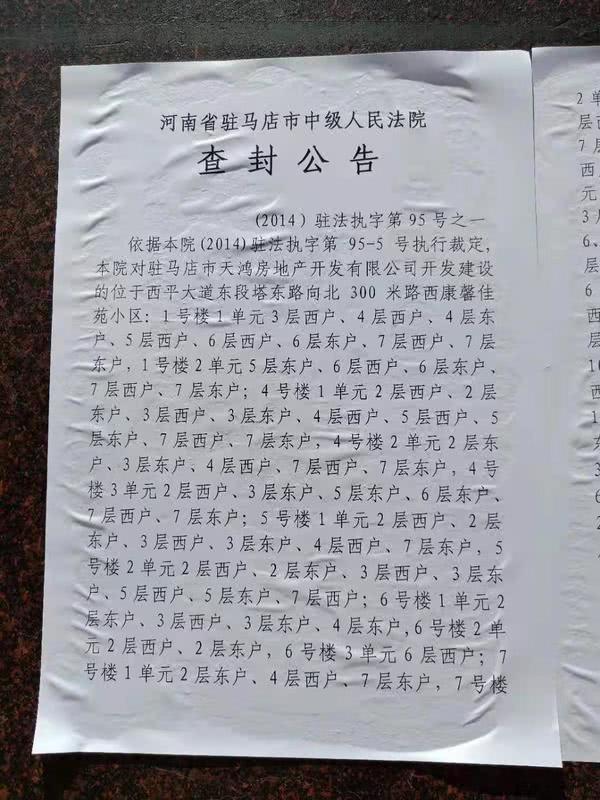 河南省驻马店市中级人民法院
查封公告
(2014)驻法执字第95号之一
依据本院(2014)驻法执字第 95-5 号执行裁定,
本院对驻马店市天鸿房地产开发有限公司开发建设
的位于西平大道东段塔东路向北 300 米路西康馨佳
苑小区: 1号楼1单元3层西户、4层西户、4层东
户、5层西户、6层西户、6层东户、7层西户、7层
东户, 1号楼2单元5层东户、6层西户、6层东户、
7层西户、7层东户; 4号楼1单元2层西户、2层
东户、3层西户、3层东户、4层西户、5层西户、5
层东户、7层西户、7层东户, 4号楼2单元2层东
户、3层东户、4层西户、7层西户、7层东户, 4号
楼3单元2层西户、3层东户、5层东户、6层东户、
7层西户、7层东户; 5号楼1单元2层西户、2层
东户、3层西户、3层东户、4层西户、7层东户, 5
号楼2单元2层西户、2层东户、3层西户、3层东
户、5层西户、5层东户、7层西户; 6号楼1单元2
层东户、3层西户、3层东户、4层东户,6号楼2单
元2层西户、2层东户, 6号楼3单元6层西户; 7
号楼1单元2层东户、4层西户、7层东户, 7号楼
2单
层西
7层
西户
元
3层
6、
6
西
层
10
西
1
东
3
6
2